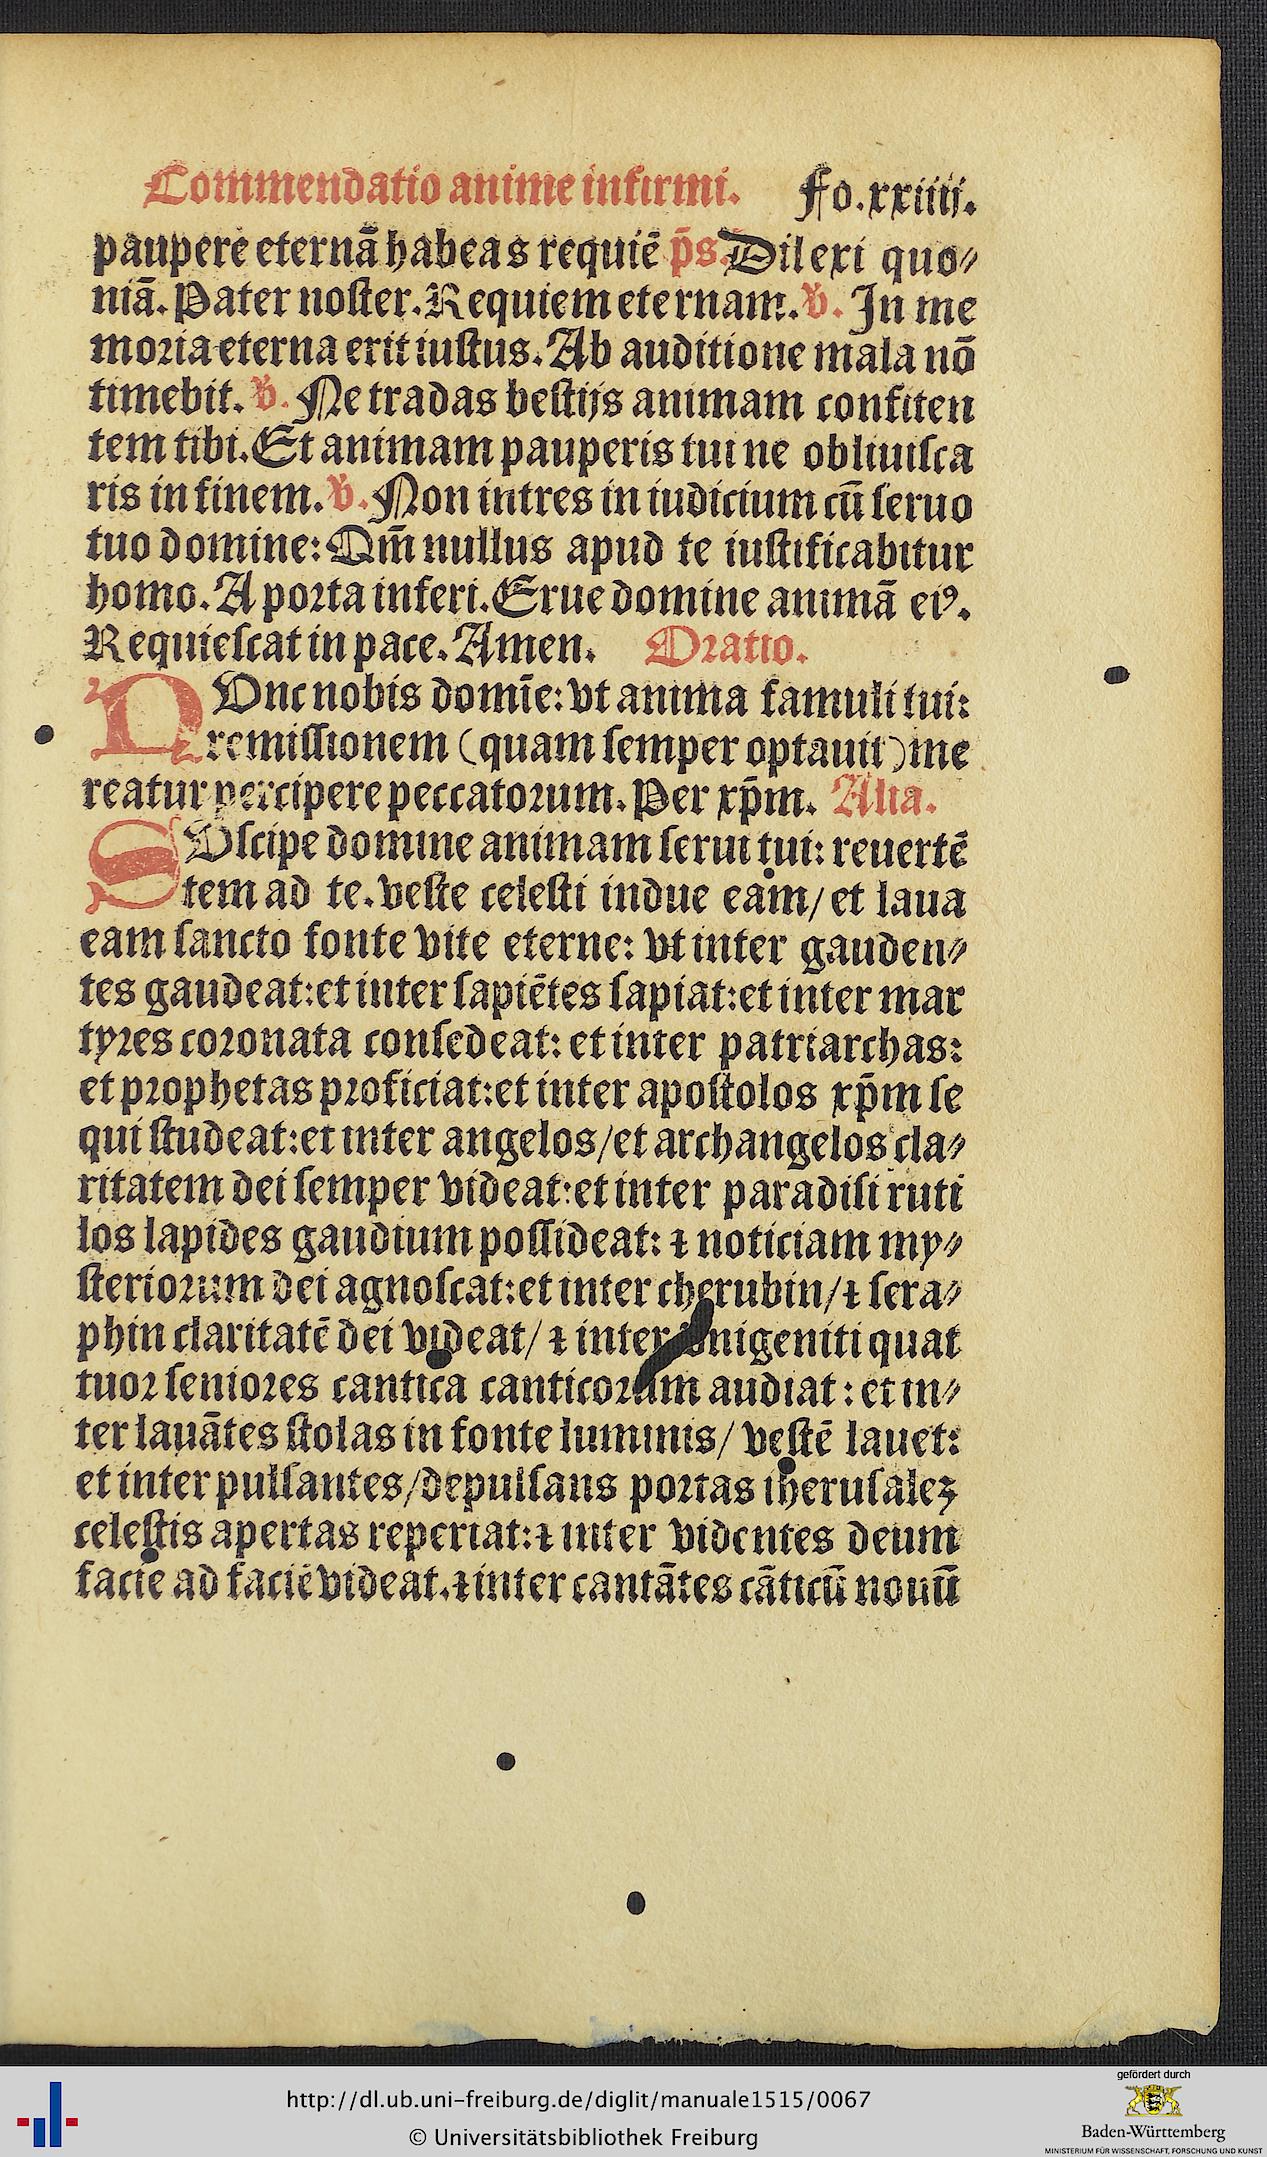 Commendatio anime infirmi. Fo.xxiiij.
paupere eternā habeas requiē p̄s. Dilexi quo⸗
niā. Pater noster. Requiem eternam. V. In me
moria eterna erit iustus. Ab auditione mala nō
timebit. V. Ne tradas bestijs animam confiten
tem tibi. Et animam pauperis tui ne obliuisca
ris in finem. V. Non intres in iudicium cū seruo
tuo domine: Qm̄ nullus apud te iustificabitur
homo. A porta inferi. Erue domine animā eiꝰ.
Requiescat in pace. Amen. Oratio.
PUnc nobis domīe: vt anima famuli tui:
remissionem (quam semper optauit) me
reatur percipere peccatorum. Per xp̄m. Alia.
SUscipe domine animam serui tui: reuertē
tem ad te. veste celesti indue eam/ et laua
eam sancto fonte vite eterne: vt inter gauden⸗
tes gaudeat: et inter sapiētes sapiat: et inter mar
tyres coronata consedeat: et inter patriarchas:
et prophetas proficiat: et inter apostolos xp̄m se
qui studeat: et inter angelos/ et archangelos cla⸗
ritatem dei semper videat: et inter paradisi ruti
los lapides gaudium possideat: ⁊ noticiam my⸗
steriorum dei agnoscat: et inter cherubin/ ⁊ sera⸗
phin claritatē dei videat/ ⁊ inter vnigeniti quat
tuor seniores cantica canticorum audiat: et in⸗
ter lauātes stolas in fonte luminis/ vestē lauet:
et inter pulsantes/ depulsans portas iherusaleꝫ
celestis apertas reperiat: ⁊ inter videntes deum
facie ad faciē videat. ⁊ inter cantātes cāticū nouū
http://dl.ub.uni-freiburg.de/diglit/manuale1515/0067
© Universitätsbibliothek Freiburg
gefördert durch
Baden-Württemberg
MINISTERIUM FÜR WISSENSCHAFT, FORSCHUNG UND KUNST